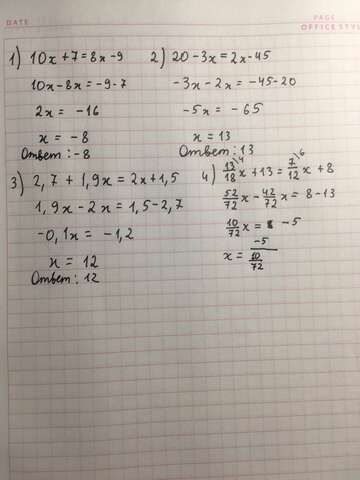 DATE
PAGE
OFFICE STYL
1) 10x + 7 = 8x - 9
10x - 8x = -9 - 7
2x = -16
x = -8
Ответ: -8
2) 20 - 3x = 2x - 45
-3x - 2x = -45 - 20
-5x = -65
x = 13
Ответ: 13
3) 2,7 + 1,9x = 2x + 1,5
1,9x - 2x = 1,5 - 2,7
-0,1x = -1,2
x = 12
Ответ: 12
4) 13/18 \4 x + 13 = 7/12 \6 x + 8
52/72 x - 42/72 x = 8 - 13
10/72 x = -5
x = -5 / 10/72